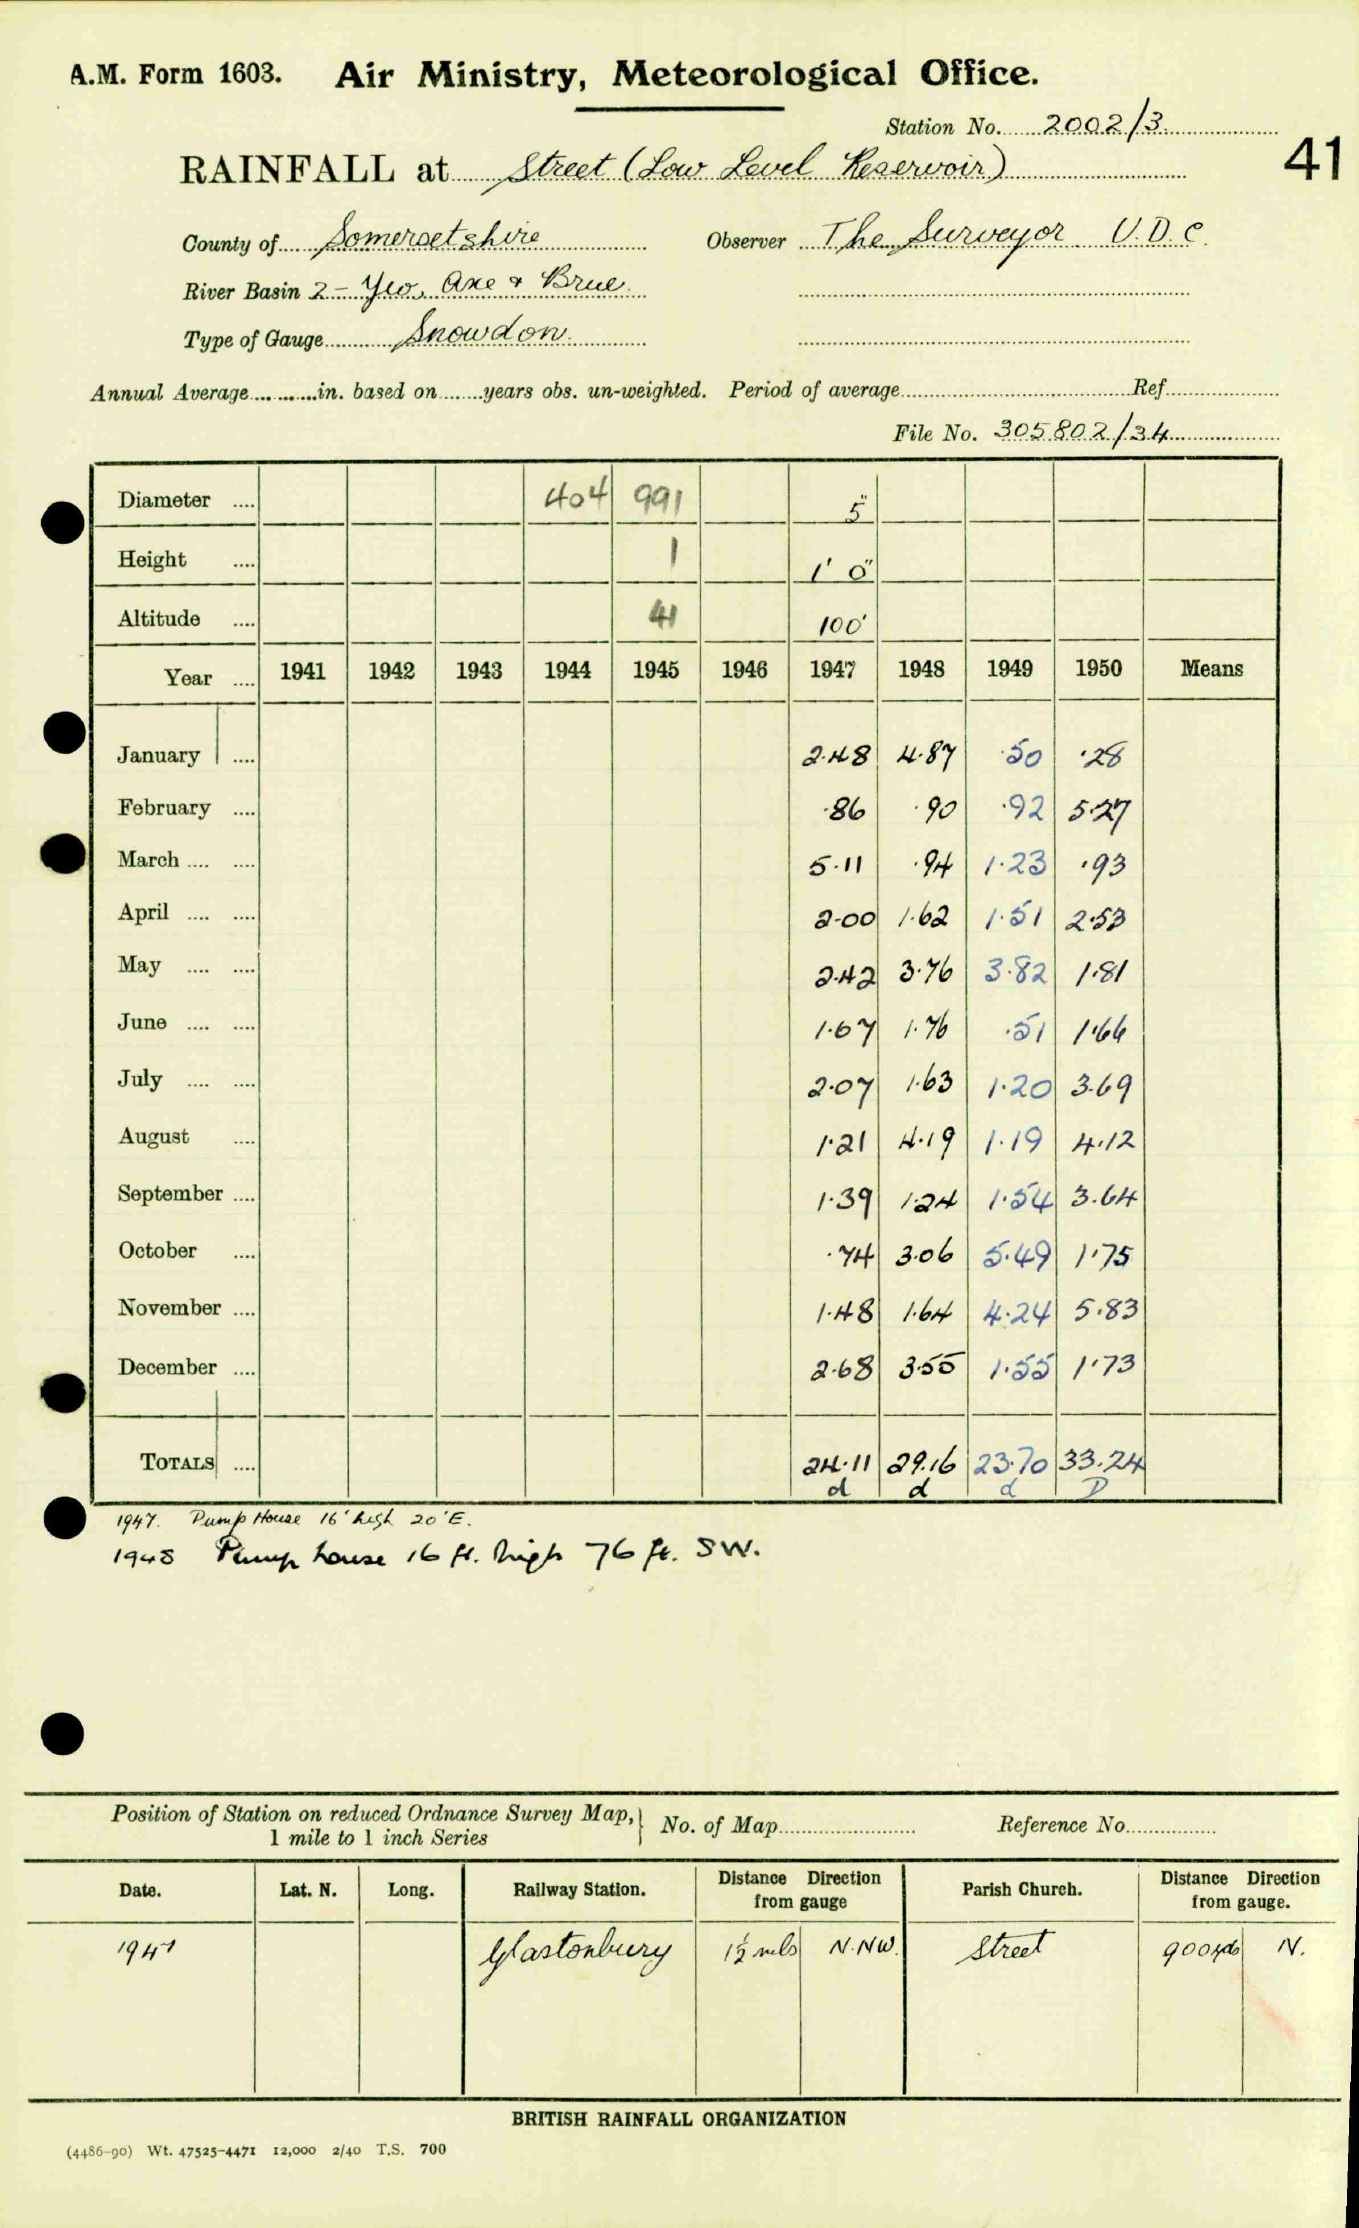 A.M. Form 1603. Air Ministry, Meteorological Office.
Station No. 2002/3
RAINFALL at Street (Low Level Reservoir)
41
County of Somersetshire Observer The Surveyor U.D.C.
River Basin 2 - Yeo, Axe & Brue
Type of Gauge Snowdon
Annual Average .... in. based on .... years obs. un-weighted. Period of average .... Ref ....
File No. 305802/34
Diameter .... 404 991 5"
Height .... 1 1' 0"
Altitude .... 41 100'
Year .... 1941 1942 1943 1944 1945 1946 1947 1948 1949 1950 Means
January .... 2.48 4.87 .50 .28
February .... .86 .90 .92 5.27
March .... .... 5.11 .94 1.23 .93
April .... .... 2.00 1.62 1.51 2.53
May .... .... 2.42 3.76 3.82 1.81
June .... .... 1.67 1.76 .51 1.66
July .... .... 2.07 1.63 1.20 3.69
August .... 1.21 4.19 1.19 4.12
September .... 1.39 1.24 1.54 3.64
October .... .74 3.06 5.49 1.75
November .... 1.48 1.64 4.24 5.83
December .... 2.68 3.55 1.55 1.73
TOTALS .... 24.11 29.16 23.70 33.24
d d d D
1947. Pump House 16' high 20' E.
1948 Pump house 16 ft. high 76 ft. SW.
Position of Station on reduced Ordnance Survey Map, 1 mile to 1 inch Series } No. of Map .... Reference No. ....
Date. Lat. N. Long. Railway Station. Distance Direction from gauge Parish Church. Distance Direction from gauge.
1947 Glastonbury 1½ mls N.NW. Street 900 yds N.
BRITISH RAINFALL ORGANIZATION
(4486-90) Wt. 47525-4471 12,000 2/40 T.S. 700